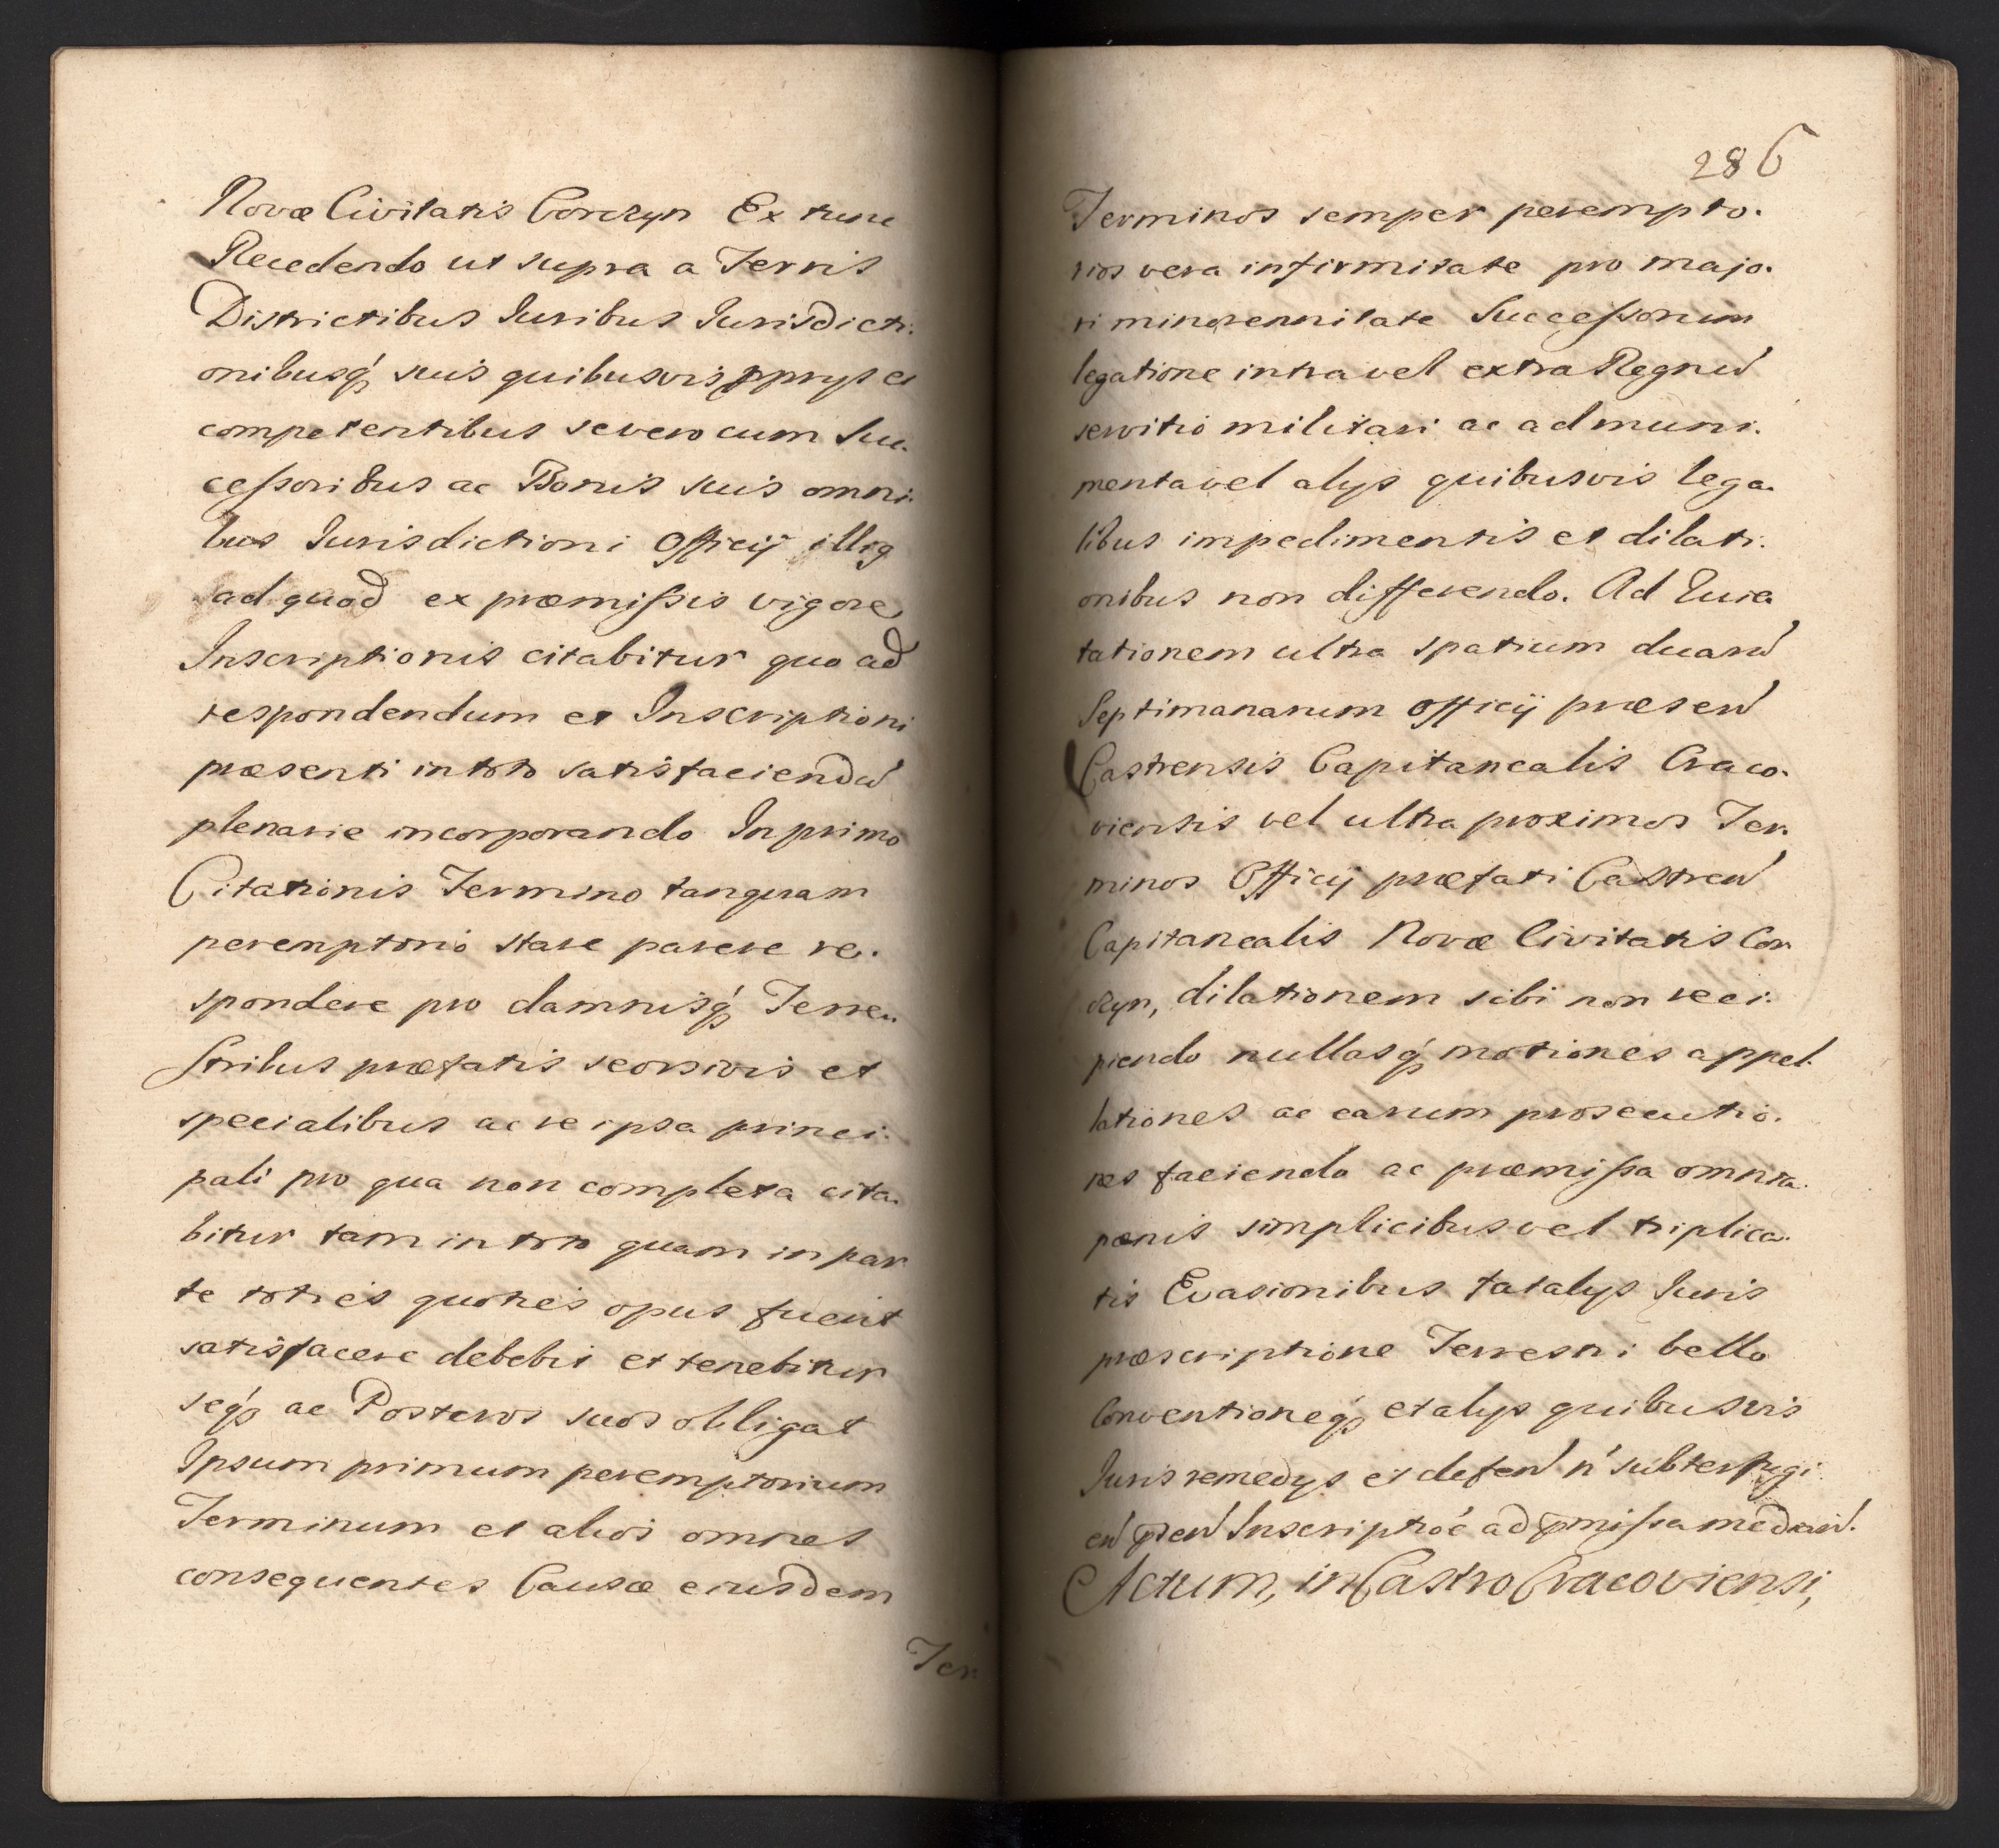 Novæ Civitatis Corczyn Ex tunc
Recedendo ut supra a Terris
Districtibus Juribus Jurisdicti.
onibusq́ꝫ suis quibusvis ppryis et
competentibus se vero cum Suc.
ceſsoribus ac Bonis suis omni.
bus Jurisdictioni Officij illig
ad quod ex præmiſsis vigore
Inscriptionis citabitur quo ad
respondendum et Inscriptioni
præsenti in toto satisfaciend́u
plenarie incorporando In primo
Citationis Termino tanquam
peremptorio stare parere re.
spondere pro damnisq́ꝫ Terre.
stribus præfatis seorsivis et
specialibus ac re ipsa princi.
pali pro qua non completa cita.
bitur tam in toto quam in par
te toties quoties opus fuerit
satisfacere debebit et tenebitur
seq́ꝫ ac Posteros suos obligat
Ipsum primum peremptorium
Terminum et alios omnes
consequentes Causæ eiusdem
Ter
286
Terminos semper perempto.
rios vera infirmitate pro majo.
ri minorennitate Succeſsorum
legatione intra vel extra Regnú
servitio militari ac ad muni.
menta vel alys quibusvis lega.
libus impedimentis et dilati.
onibus non differendo. Ad Jura
tationem ultra spatium duarú
Septimanarum Officij præsen
Castrensis Capitanealis Craco.
viensis vel ultra proximos Ter.
minos Officij præfati Castren
Capitanealis Novæ Civitatis Cor
czyn, dilationem sibi non reci.
piendo nullasq́ꝫ motiones appel.
lationes ac earum prosecutio.
nes faciendo ac præmiſsa omnia.
pænis simplicibus vel triplica.
tis Evasionibus fatalys Juris
præscriptione Terrestri bello
Conventioneq́ꝫ et alys quibusvis
Juris remedys et defen ń subterfugi
en p̄sen Inscriptóe ad p̄miſsa median.
Actum, in Castro Cracoviensi,